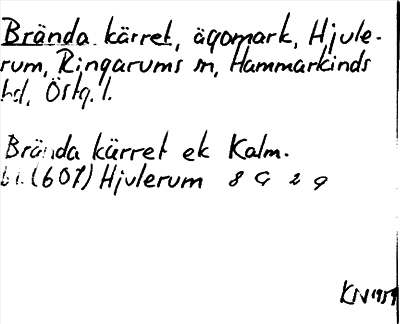 Brända kärret, ägomark, Hjule-
rum, Ringarums sn, Hammarkinds
hd, Östg. l.
Brända kärret ek Kalm.
bl. (607) Hjulerum 8 G 2 g
KN 1959